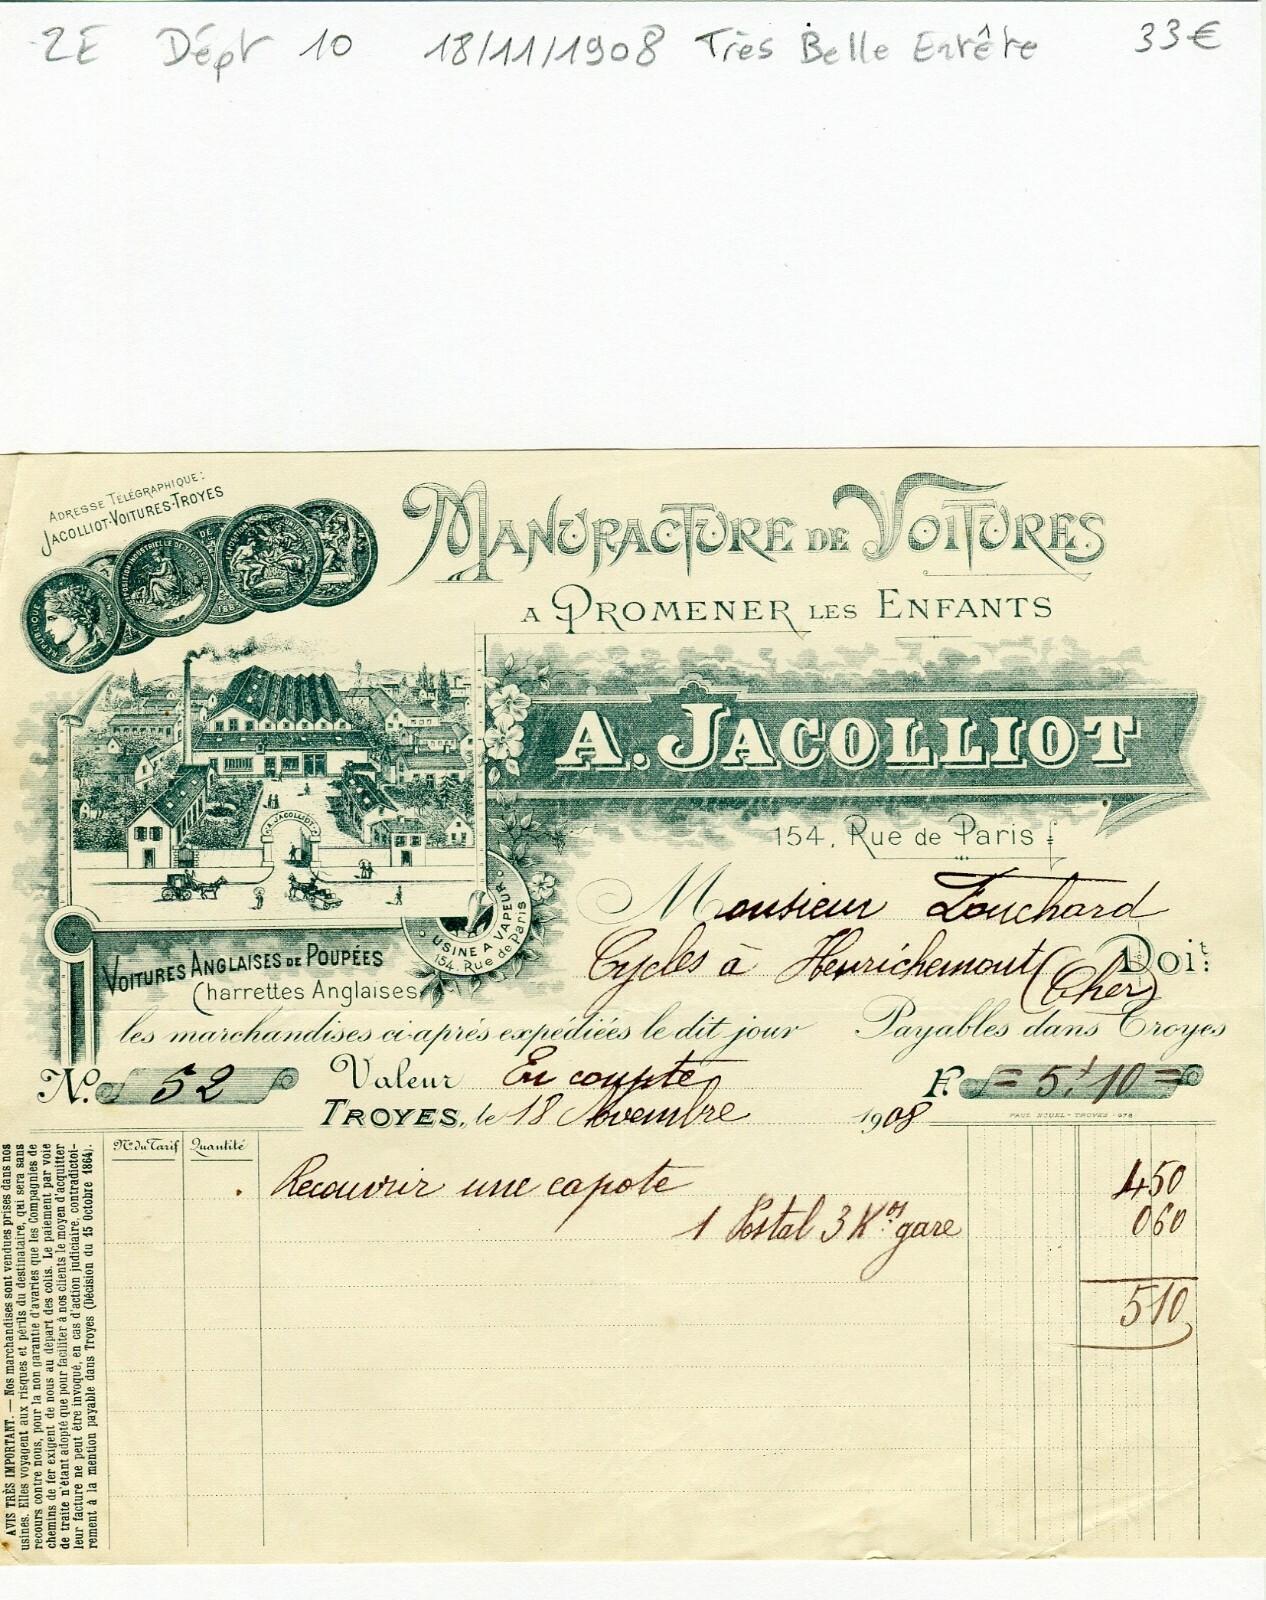 2E Dépt 10 18/11/1908 Très Belle Entête 33€
ADRESSE TÉLÉGRAPHIQUE:
JACOLLIOT-VOITURES-TROYES
MANUFACTURE DE VOITURES
A PROMENER LES ENFANTS
A. JACOLLIOT
154, Rue de Paris
A. JACOLLIOT
USINE A VAPEUR
154, Rue de Paris
VOITURES ANGLAISES DE POUPÉES
Charrettes Anglaises
Monsieur Louchard
Cycles à Henrichemont (Cher) Doit:
les marchandises ci-après expédiées le dit jour Payables dans Troyes
No. 52 Valeur En compte F. = 5f 10 =
TROYES, le 18 Novembre 1908
PAUL NOUEL - TROYES - 978
No. du Tarif Quantité
Recouvrir une capote 4 50
1 Postal 3 Kos gare 0 60
5 10
AVIS TRÈS IMPORTANT. — Nos marchandises sont vendues prises dans nos
usines. Elles voyagent aux risques et périls du destinataire, qui sera sans
recours contre nous, pour la non garantie d'avaries que les Compagnies de
chemins de fer exigent de nous au départ des colis. Le paiement par voie
de traite n'étant adopté que pour faciliter à nos clients le moyen d'acquitter
leur facture ne peut être invoqué, en cas d'action judiciaire, contradictoi-
rement à la mention payable dans Troyes (Décision du 15 Octobre 1864).